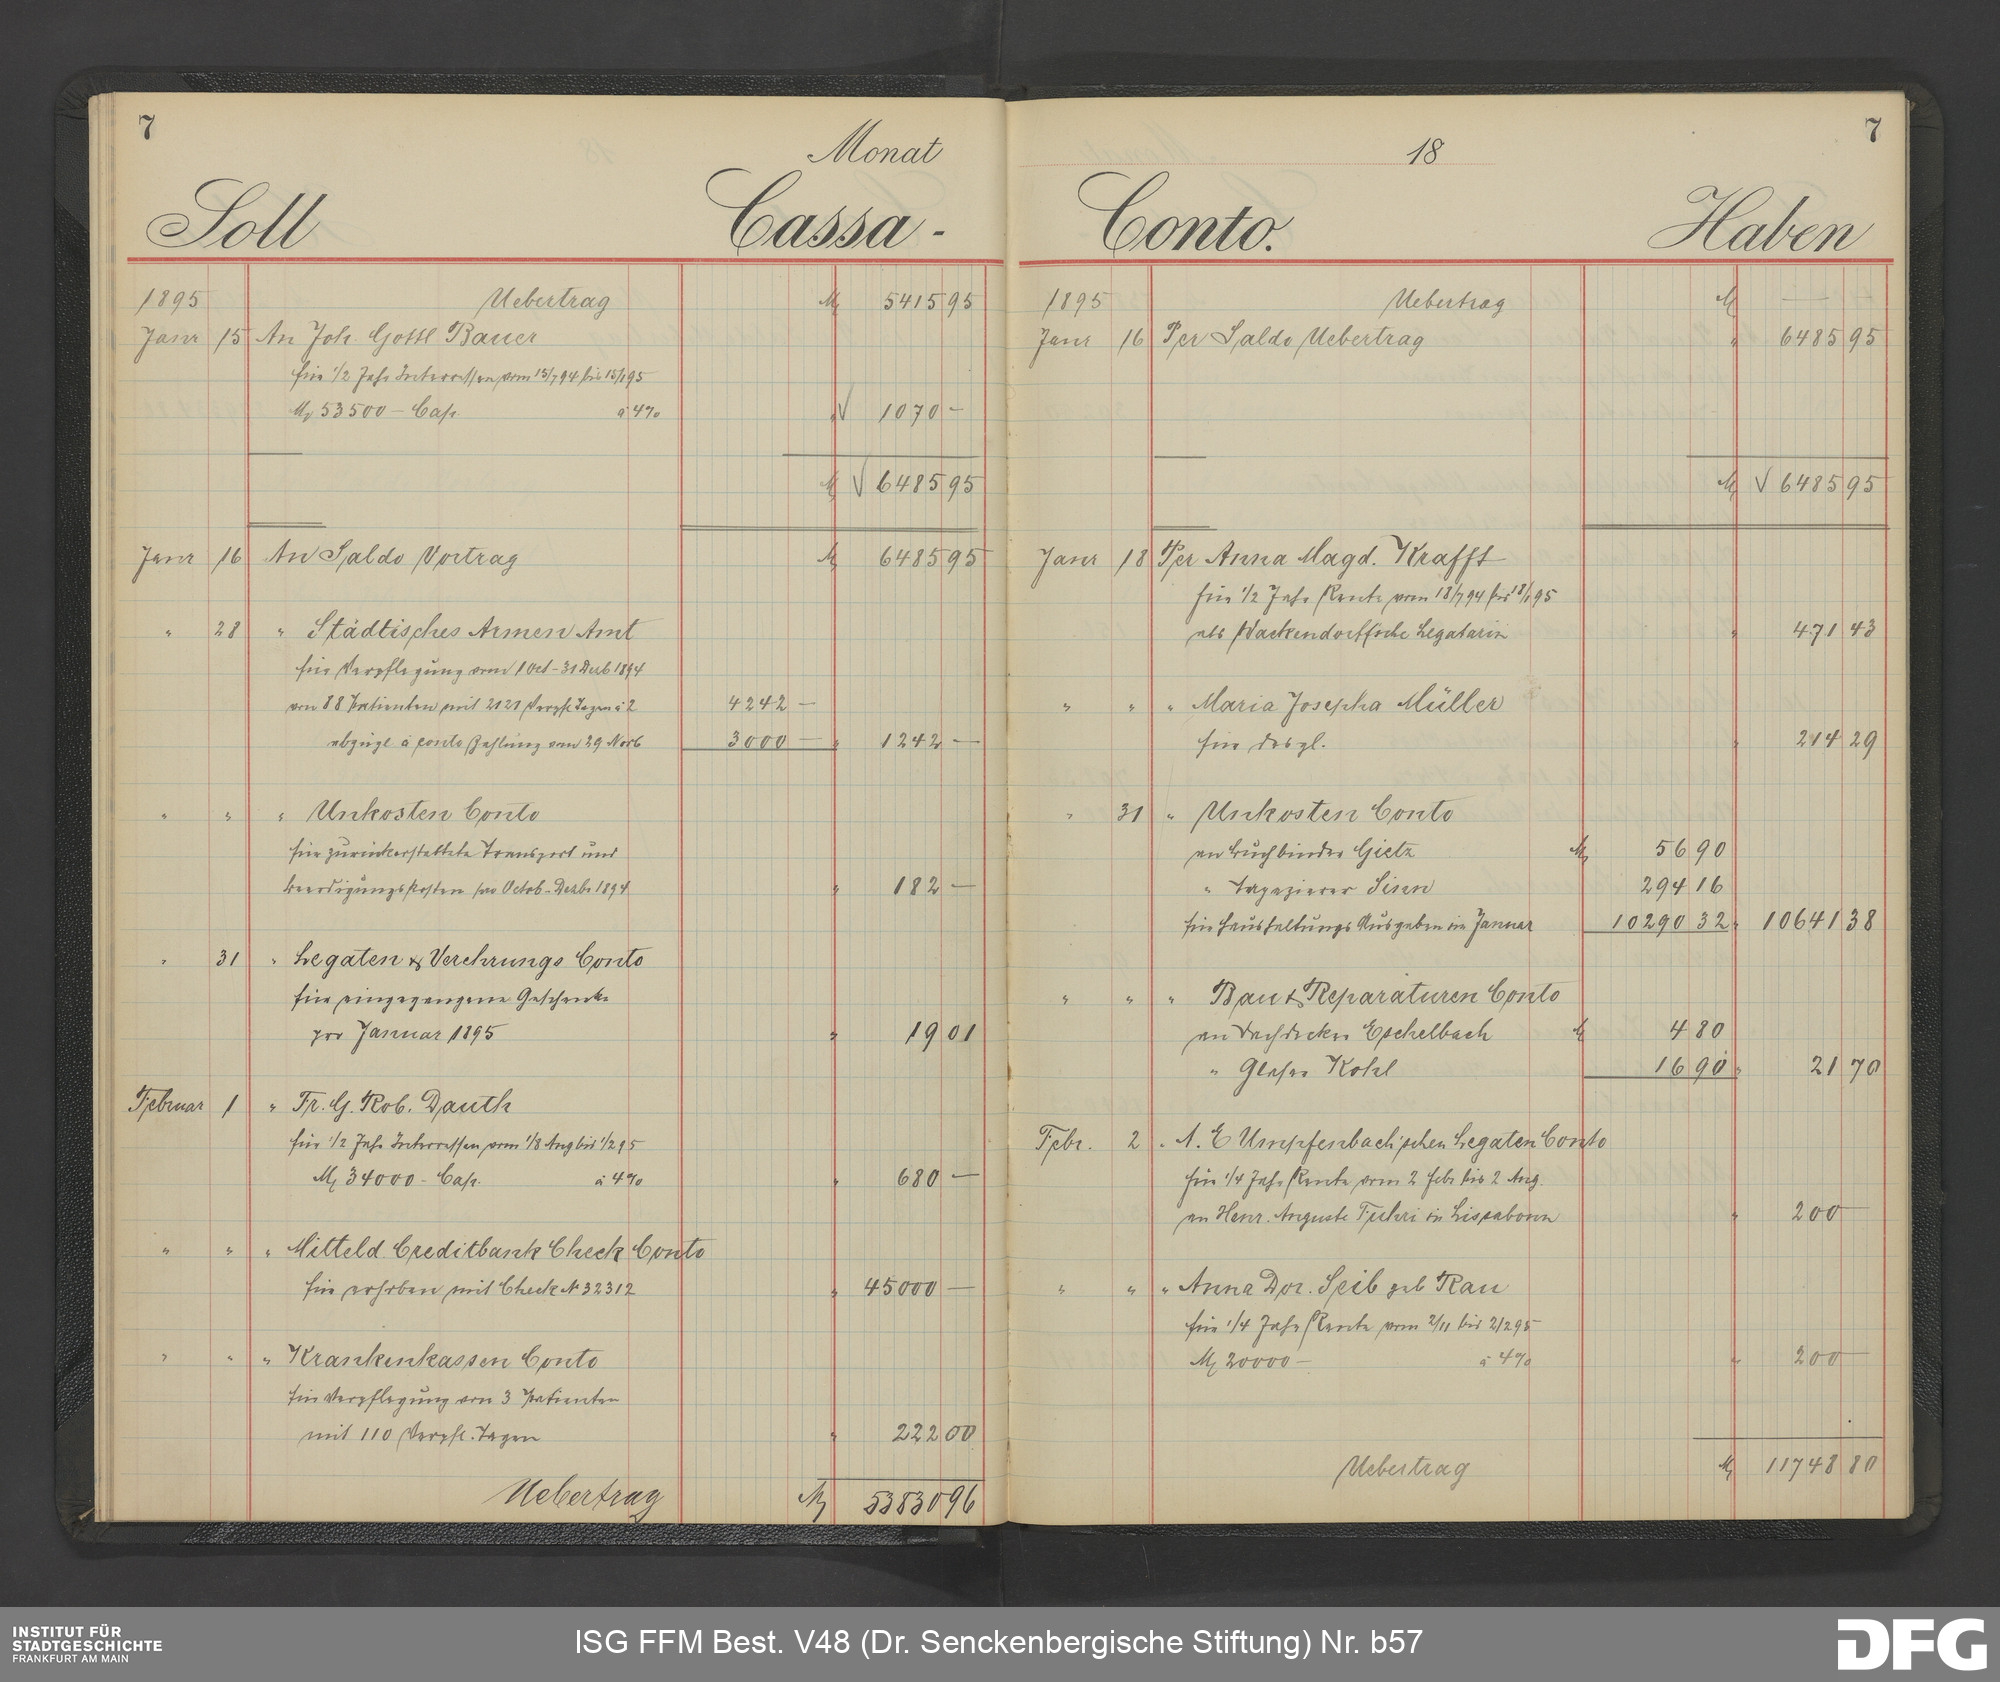 7
Monat
Soll Cassa-
1895 Uebertrag M 5415 95
Janr 15 An Joh. Gottl Bauer
für 1/2 Jahr Interessen vom 15/7 94 bis 15/1 95
M 53500 — Cap. à 4% √ 1070 —
M √ 6485 95
Janr 16 An Saldo Vortrag M 6485 95
" 28 " Städtisches Armen Amt
für Verpflegung vom 1 Oct - 31 Dezb 1894
von 88 Patienten mit 2121 Verpfl. Tagen à 2 4242 —
abzügl à conto Zahlung vom 29 Novb 3000 — " 1242 —
" " " Unkosten Conto
für zurückerstattete Transport und
Beerdigungskosten pro Octob - Dezbr 1894 " 182 —
" 31 " Legaten & Verehrungs Conto
für eingegangene Geschenke
pro Januar 1895 " 19 01
Februar 1 " Fr. G. Rob. Dauth
für 1/2 Jahr Interessen vom 1/8 Aug bis 1/2 95
M 34000 - Cap. à 4% " 680 —
" " " Mitteld. Creditbank Check Conto
für erhoben mit Check No 32312 " 45000 —
" " " Krankenkassen Conto
für Verpflegung von 3 Patienten
mit 110 Verpfl. Tagen " 222 00
Uebertrag M 53830 96
18
7
Conto. Haben
1895 Uebertrag M — —
Janr 16 Per Saldo Uebertrag " 6485 95
M √ 6485 95
Janr 18 Per Anna Magd. Krafft
für 1/2 Jahr Rente vom 18/7 94 bis 18/1 95
als Wackendorffsche Legatarin " 471 43
" " " Maria Josepha Müller
für desgl. " 214 29
" 31 " Unkosten Conto
an Buchbinder Gietz M 56 90
" Tapezierer Sinn 294 16
für Haushaltungs Ausgaben im Januar 10290 32 " 10641 38
" " " Bau & Reparaturen Conto
an Dachdecker Eschelbach M 4 80
" Glaser Kohl 16 90 " 21 70
Febr. 2 " A. E Umpfenbach'schen Legaten Conto
für 1/4 Jahr Rente vom 2 Febr bis 2 Aug.
an Henr. Auguste Fuhri in Lissabonn " 200 —
" " " Anna Dor. Seib geb Rau
für 1/4 Jahr Rente vom 2/11 bis 2/2 95
M 20000 — à 4% " 200 —
Uebertrag M 11748 80
INSTITUT FÜR
STADTGESCHICHTE
FRANKFURT AM MAIN
ISG FFM Best. V48 (Dr. Senckenbergische Stiftung) Nr. b57
DFG